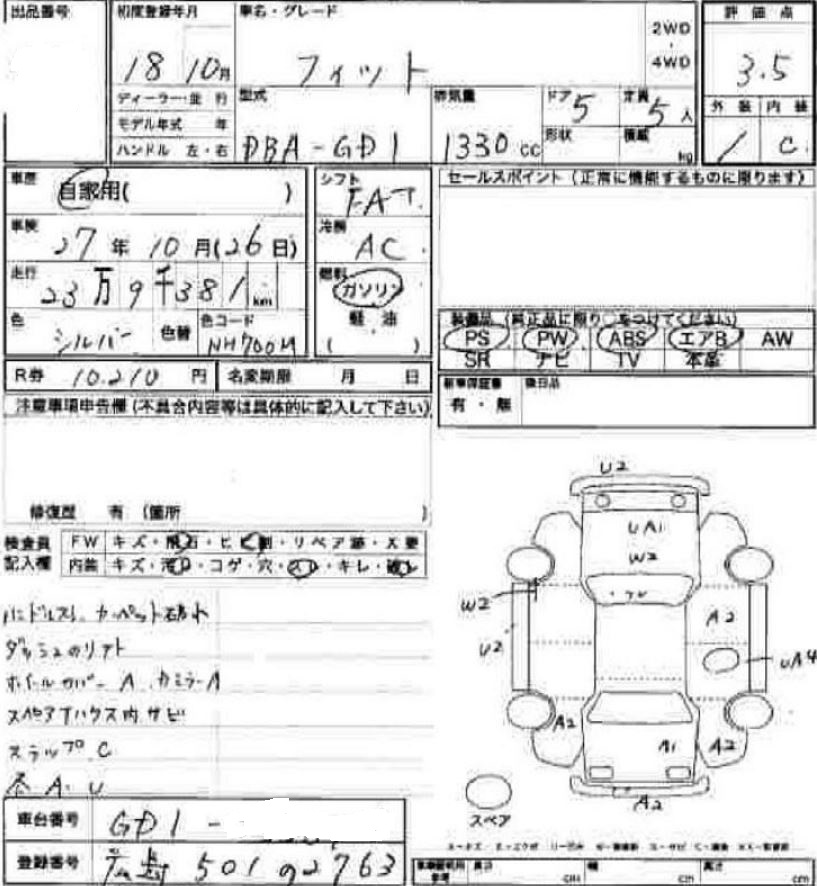 出品番号
初度登録年月
18 10月
車名・グレード
フィット
2WD
4WD
評価点
3.5
ディーラー・並 行
モデル年式 年
ハンドル 左・右
型式
DBA-GD1
排気量
1330 cc
ドア 5
形状
定員 5 人
積載 kg
外装 内装
C
車歴
自家用( )
シフト
FAT
セールスポイント (正常に機能するものに限ります)
車検
27年 10月(26日)
冷房
AC
走行
23万9千381 km
燃料
ガソリン
軽油
( )
色
シルバー
色替
色コード
NH700M
装備品 (純正品に限り○をつけてください)
PS PW ABS エアB AW
SR ナビ TV 本革
R券 10.210 円
名変期限 月 日
新車保証書
有・無
後日品
注意事項申告欄 (不具合内容等は具体的に記入して下さい)
修復歴 有 (箇所 )
検査員
記入欄
FW キズ・飛石・ヒビ割・リペア跡・X要
内装 キズ・汚レ・コゲ・穴・スレ・キレ・破レ
ハンドルスレ カーペット破れ
ホイールカバー A
スペアタイハウス内 サビ
ステップ C
A U
U2
UA1
W2
W2
A2
U2
UA4
A2
A1
A2
A2
スペア
車台番号
GD1 -
登録番号
501 92763
長さ cm
幅 cm
高さ cm